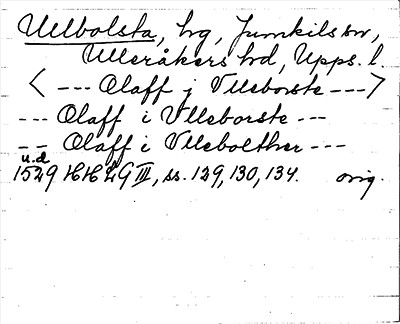 Ullbolsta, by, Jumkils sn,
Ulleråkers hd, Upps. l.
< --- Olaff j Vlleborste --- >
--- Olaff i Vlleborste ---
-- Olaff i Vllebolther ---
u.d
1529 HH LG III, ss. 129, 130, 134. orig.